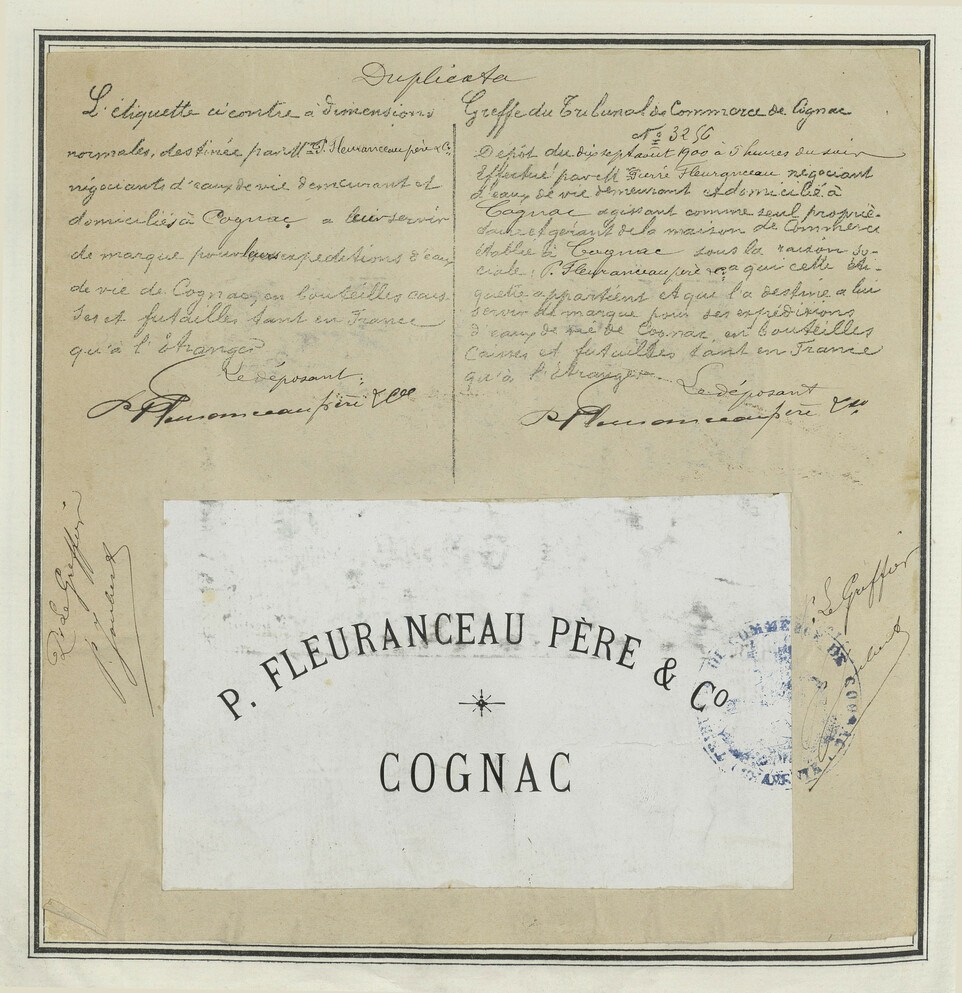 Duplicata
L'étiquette ci contre à dimensions
normales, destinée par M P. Fleuranceau père & Cie
négociants d'eaux de vie demeurant et
domiciliés à Cognac a leur servir
de marque pour leurs expéditions d'eaux
de vie de Cognac, en bouteilles cais-
ses et futailles tant en France
qu'à l'étranger
Le déposant:
P. Fleuranceau père & Cie
Greffe du Tribunal de Commerce de Cognac
No 3256
Dépôt du dix sept août 1900 à 5 heures du soir
Effectué par M Pierre Fleuranceau négociant
d'eaux de vie demeurant et domicilié à
Cognac agissant comme seul proprié-
taire et gérant de la maison de Commerce
établie à Cognac sous la raison so-
ciale: P. Fleuranceau père & Cie a qui cette éti-
quette appartient et qui l'a destine a lui
servir de marque pour ses expéditions
d'eaux de vie de Cognac, en bouteilles
Caisses et futailles tant en France
qu'à l'étranger
Le déposant
P. Fleuranceau père & Cie
Le Greffier
Le Greffier
P. FLEURANCEAU PÈRE & Co
COGNAC
DE COMMERCE DE COGNAC